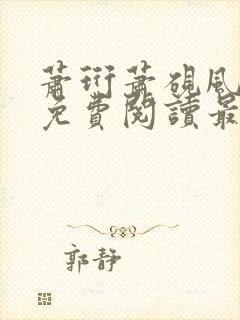 蕭珩蕭硯風
免費閱讀最
郭靜